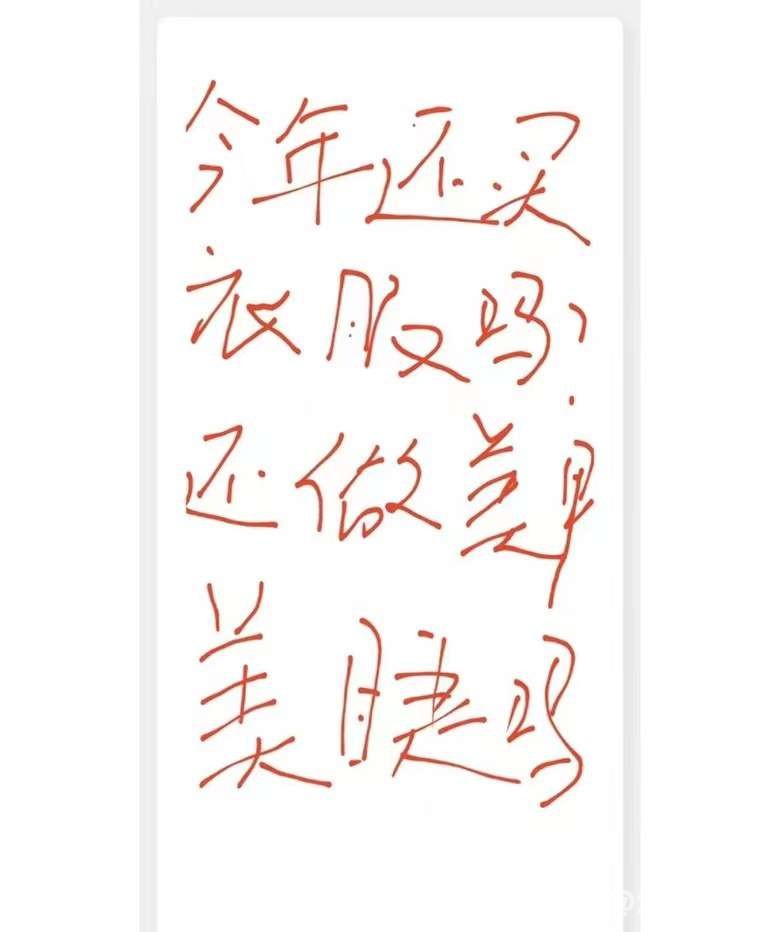 今年还买
衣服吗?
还做美甲
美睫吗